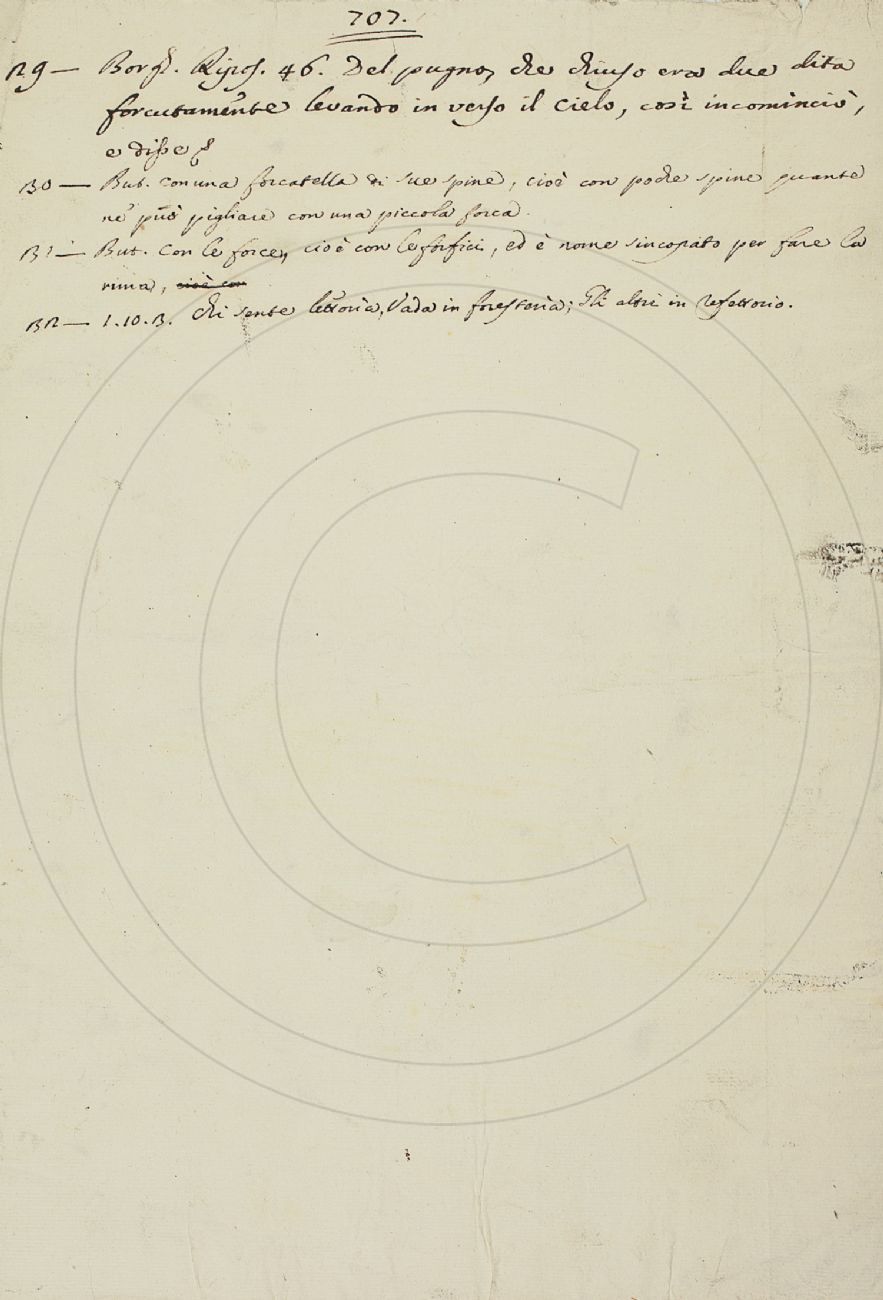 707.
29 — Borgh. Ripos. 46. Del pugno, che chiuso era due dita
forcutamente levando in verso il Cielo, così incominciò,
e disse
30 — But. con una forcatella di sue spine, cioè con poche spine quante
ne può pigliare con una piccola forca.
31 — But. Con le force, cioè con le forfici, ed è nome sincopato per fare la
rima, cioè con
32 — 1.10.3. Chi sente lettoria, Vada in forestoria; Gli altri in refettorio.